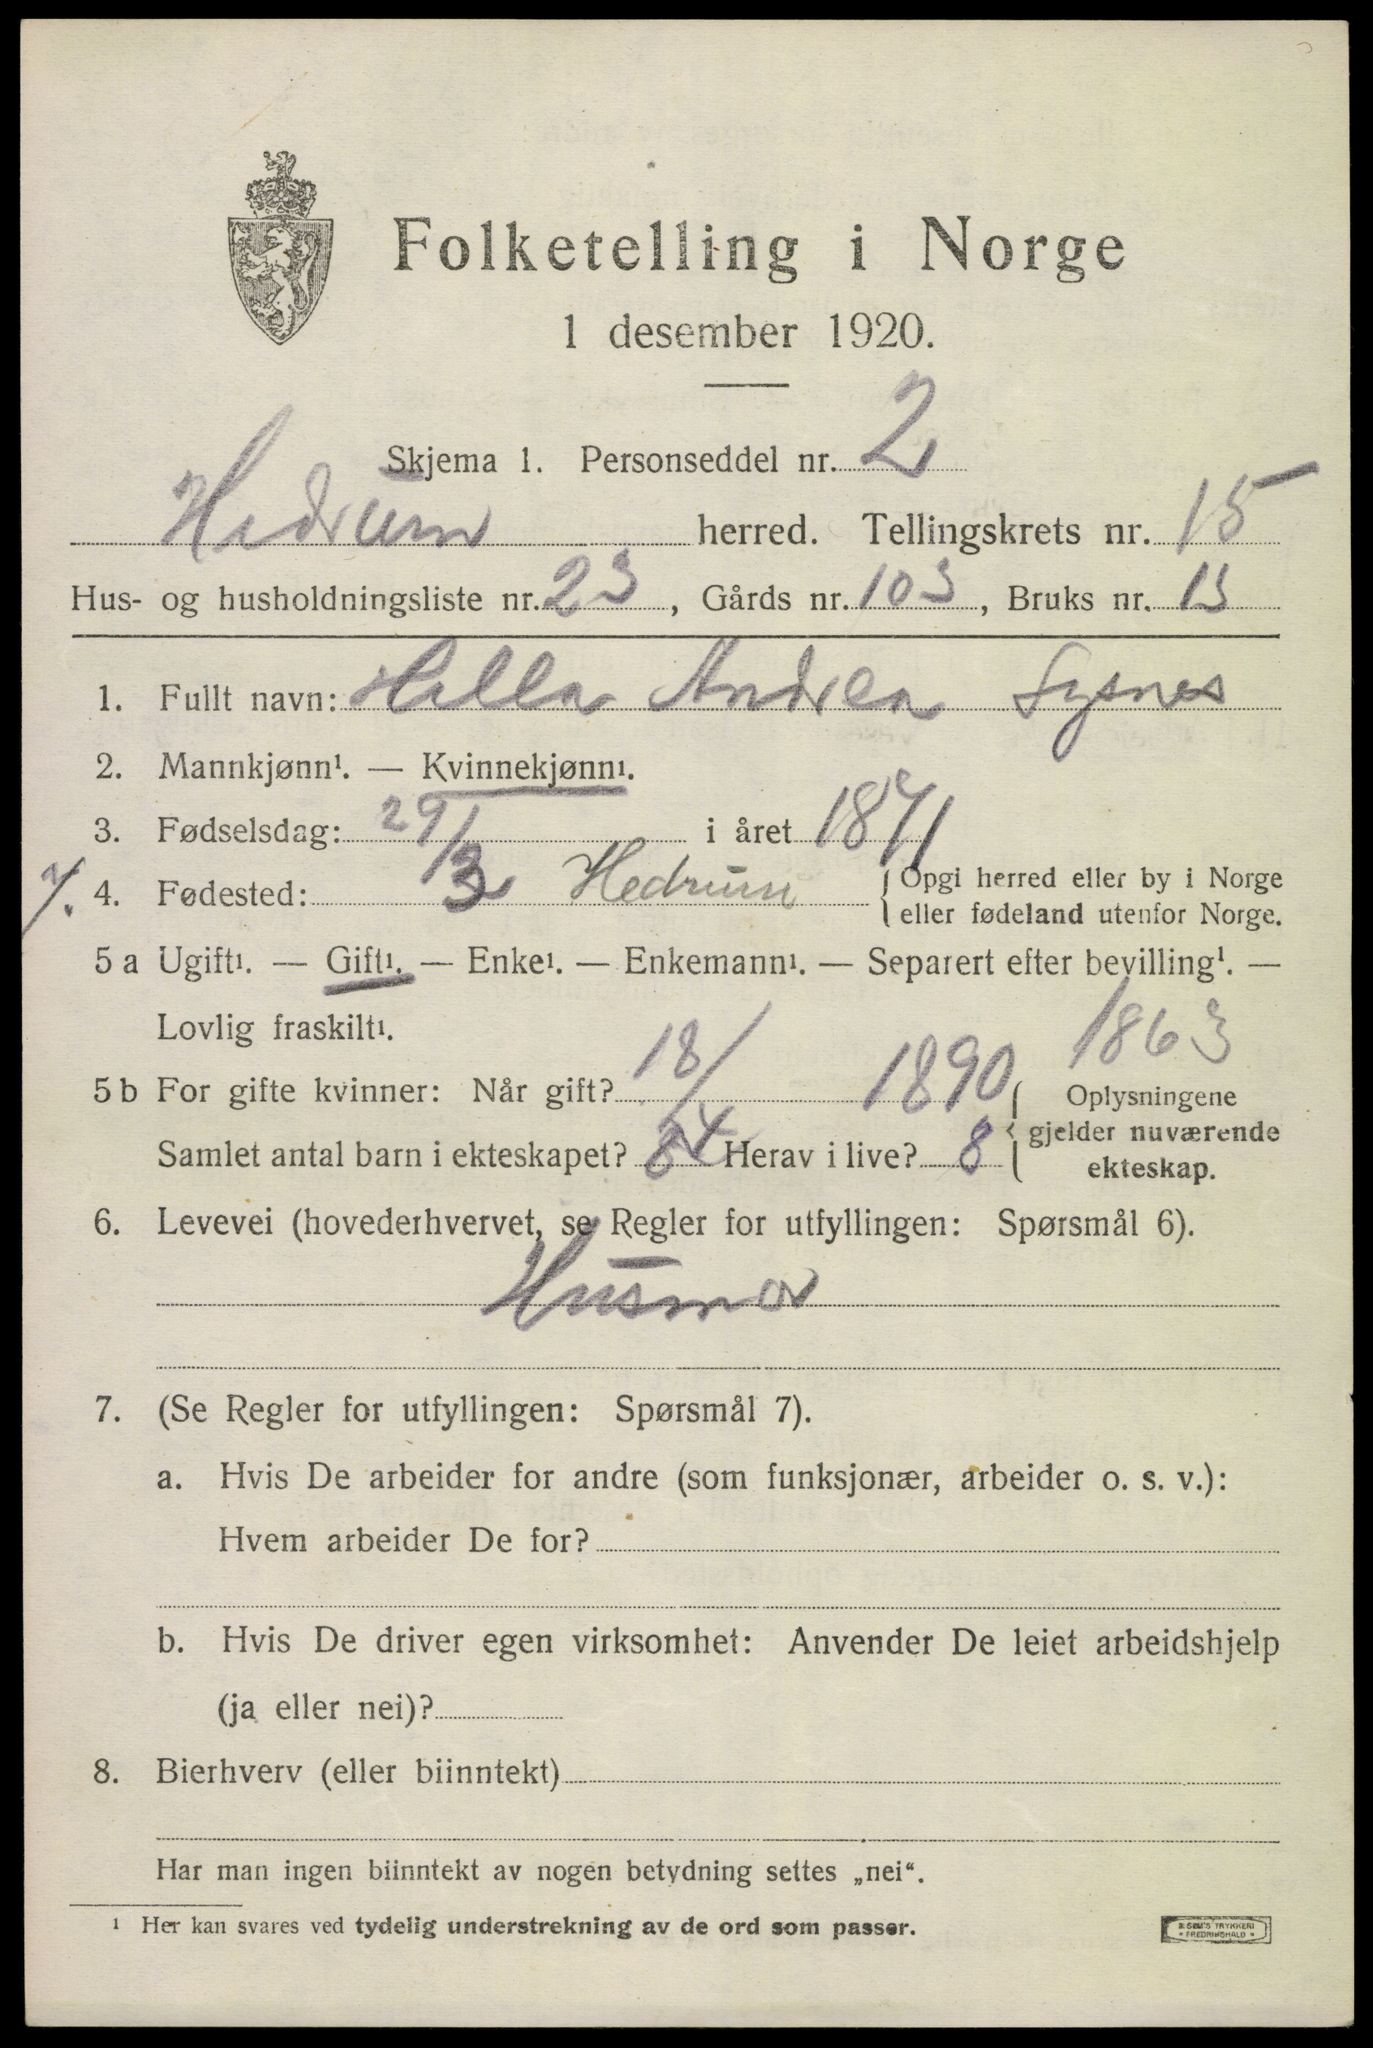 Folketelling i Norge
1 desember 1920.
Skjema 1. Personseddel nr. 2
Hedrum herred. Tellingskrets nr. 15
Hus- og husholdningsliste nr. 23, Gårds nr. 103, Bruks nr. 13
1. Fullt navn: Hella Andrea Sysnes
2. Mannkjønn¹. — Kvinnekjønn¹.
3. Fødselsdag: 29/3 i året 1871
7. 4. Fødested: Hedrum { Opgi herred eller by i Norge
eller fødeland utenfor Norge.
5 a Ugift¹. — Gift¹. — Enke¹. — Enkemann¹. — Separert efter bevilling¹. —
Lovlig fraskilt¹.
1863
5 b For gifte kvinner: Når gift? 18/ 1890 { Oplysningene
gjelder nuværende
ekteskap.
Samlet antal barn i ekteskapet? 8 Herav i live? 8
6. Levevei (hovederhvervet, se Regler for utfyllingen: Spørsmål 6).
Husmor
7. (Se Regler for utfyllingen: Spørsmål 7).
a. Hvis De arbeider for andre (som funksjonær, arbeider o. s. v.):
Hvem arbeider De for?
b. Hvis De driver egen virksomhet: Anvender De leiet arbeidshjelp
(ja eller nei)?
8. Bierhverv (eller biinntekt)
Har man ingen biinntekt av nogen betydning settes „nei“.
¹ Her kan svares ved tydelig understrekning av de ord som passer.
SEM'S TRYKKERI
* FREDRIKSHALD *